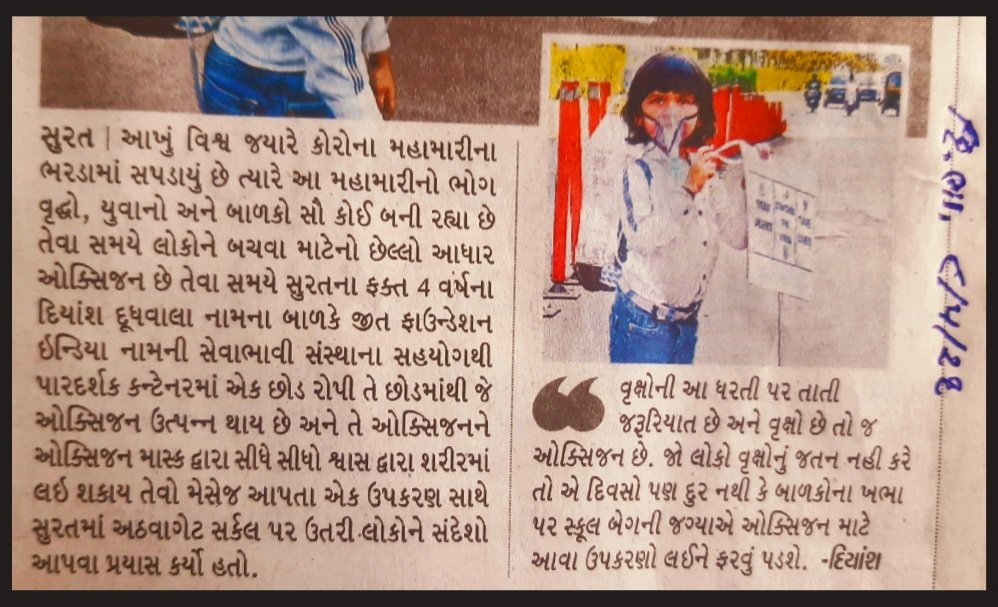 સુરત | આખું વિશ્વ જયારે કોરોના મહામારીના
ભરડામાં સપડાયું છે ત્યારે આ મહામારીનો ભોગ
વૃદ્ધો, યુવાનો અને બાળકો સૌ કોઈ બની રહ્યા છે
તેવા સમયે લોકોને બચવા માટેનો છેલ્લો આધાર
ઓક્સિજન છે તેવા સમયે સુરતના ફક્ત 4 વર્ષના
દિયાંશ દૂધવાલા નામના બાળકે જીત ફાઉન્ડેશન
ઇન્ડિયા નામની સેવાભાવી સંસ્થાના સહયોગથી
પારદર્શક કન્ટેનરમાં એક છોડ રોપી તે છોડમાંથી જે
ઓક્સિજન ઉત્પન્ન થાય છે અને તે ઓક્સિજનને
ઓક્સિજન માસ્ક દ્વારા સીધે સીધો શ્વાસ દ્વારા શરીરમાં
લઇ શકાય તેવો મેસેજ આપતા એક ઉપકરણ સાથે
સુરતમાં અઠવાગેટ સર્કલ પર ઉતરી લોકોને સંદેશો
આપવા પ્રયાસ કર્યો હતો.
વૃક્ષોની આ ધરતી પર તાતી
જરૂરિયાત છે અને વૃક્ષો છે તો જ
ઓક્સિજન છે. જો લોકો વૃક્ષોનું જતન નહી કરે
તો એ દિવસો પણ દુર નથી કે બાળકોના ખભા
પર સ્કૂલ બેગની જગ્યાએ ઓક્સિજન માટે
આવા ઉપકરણો લઈને ફરવું પડશે. -દિયાંશ
દિ.ભા,